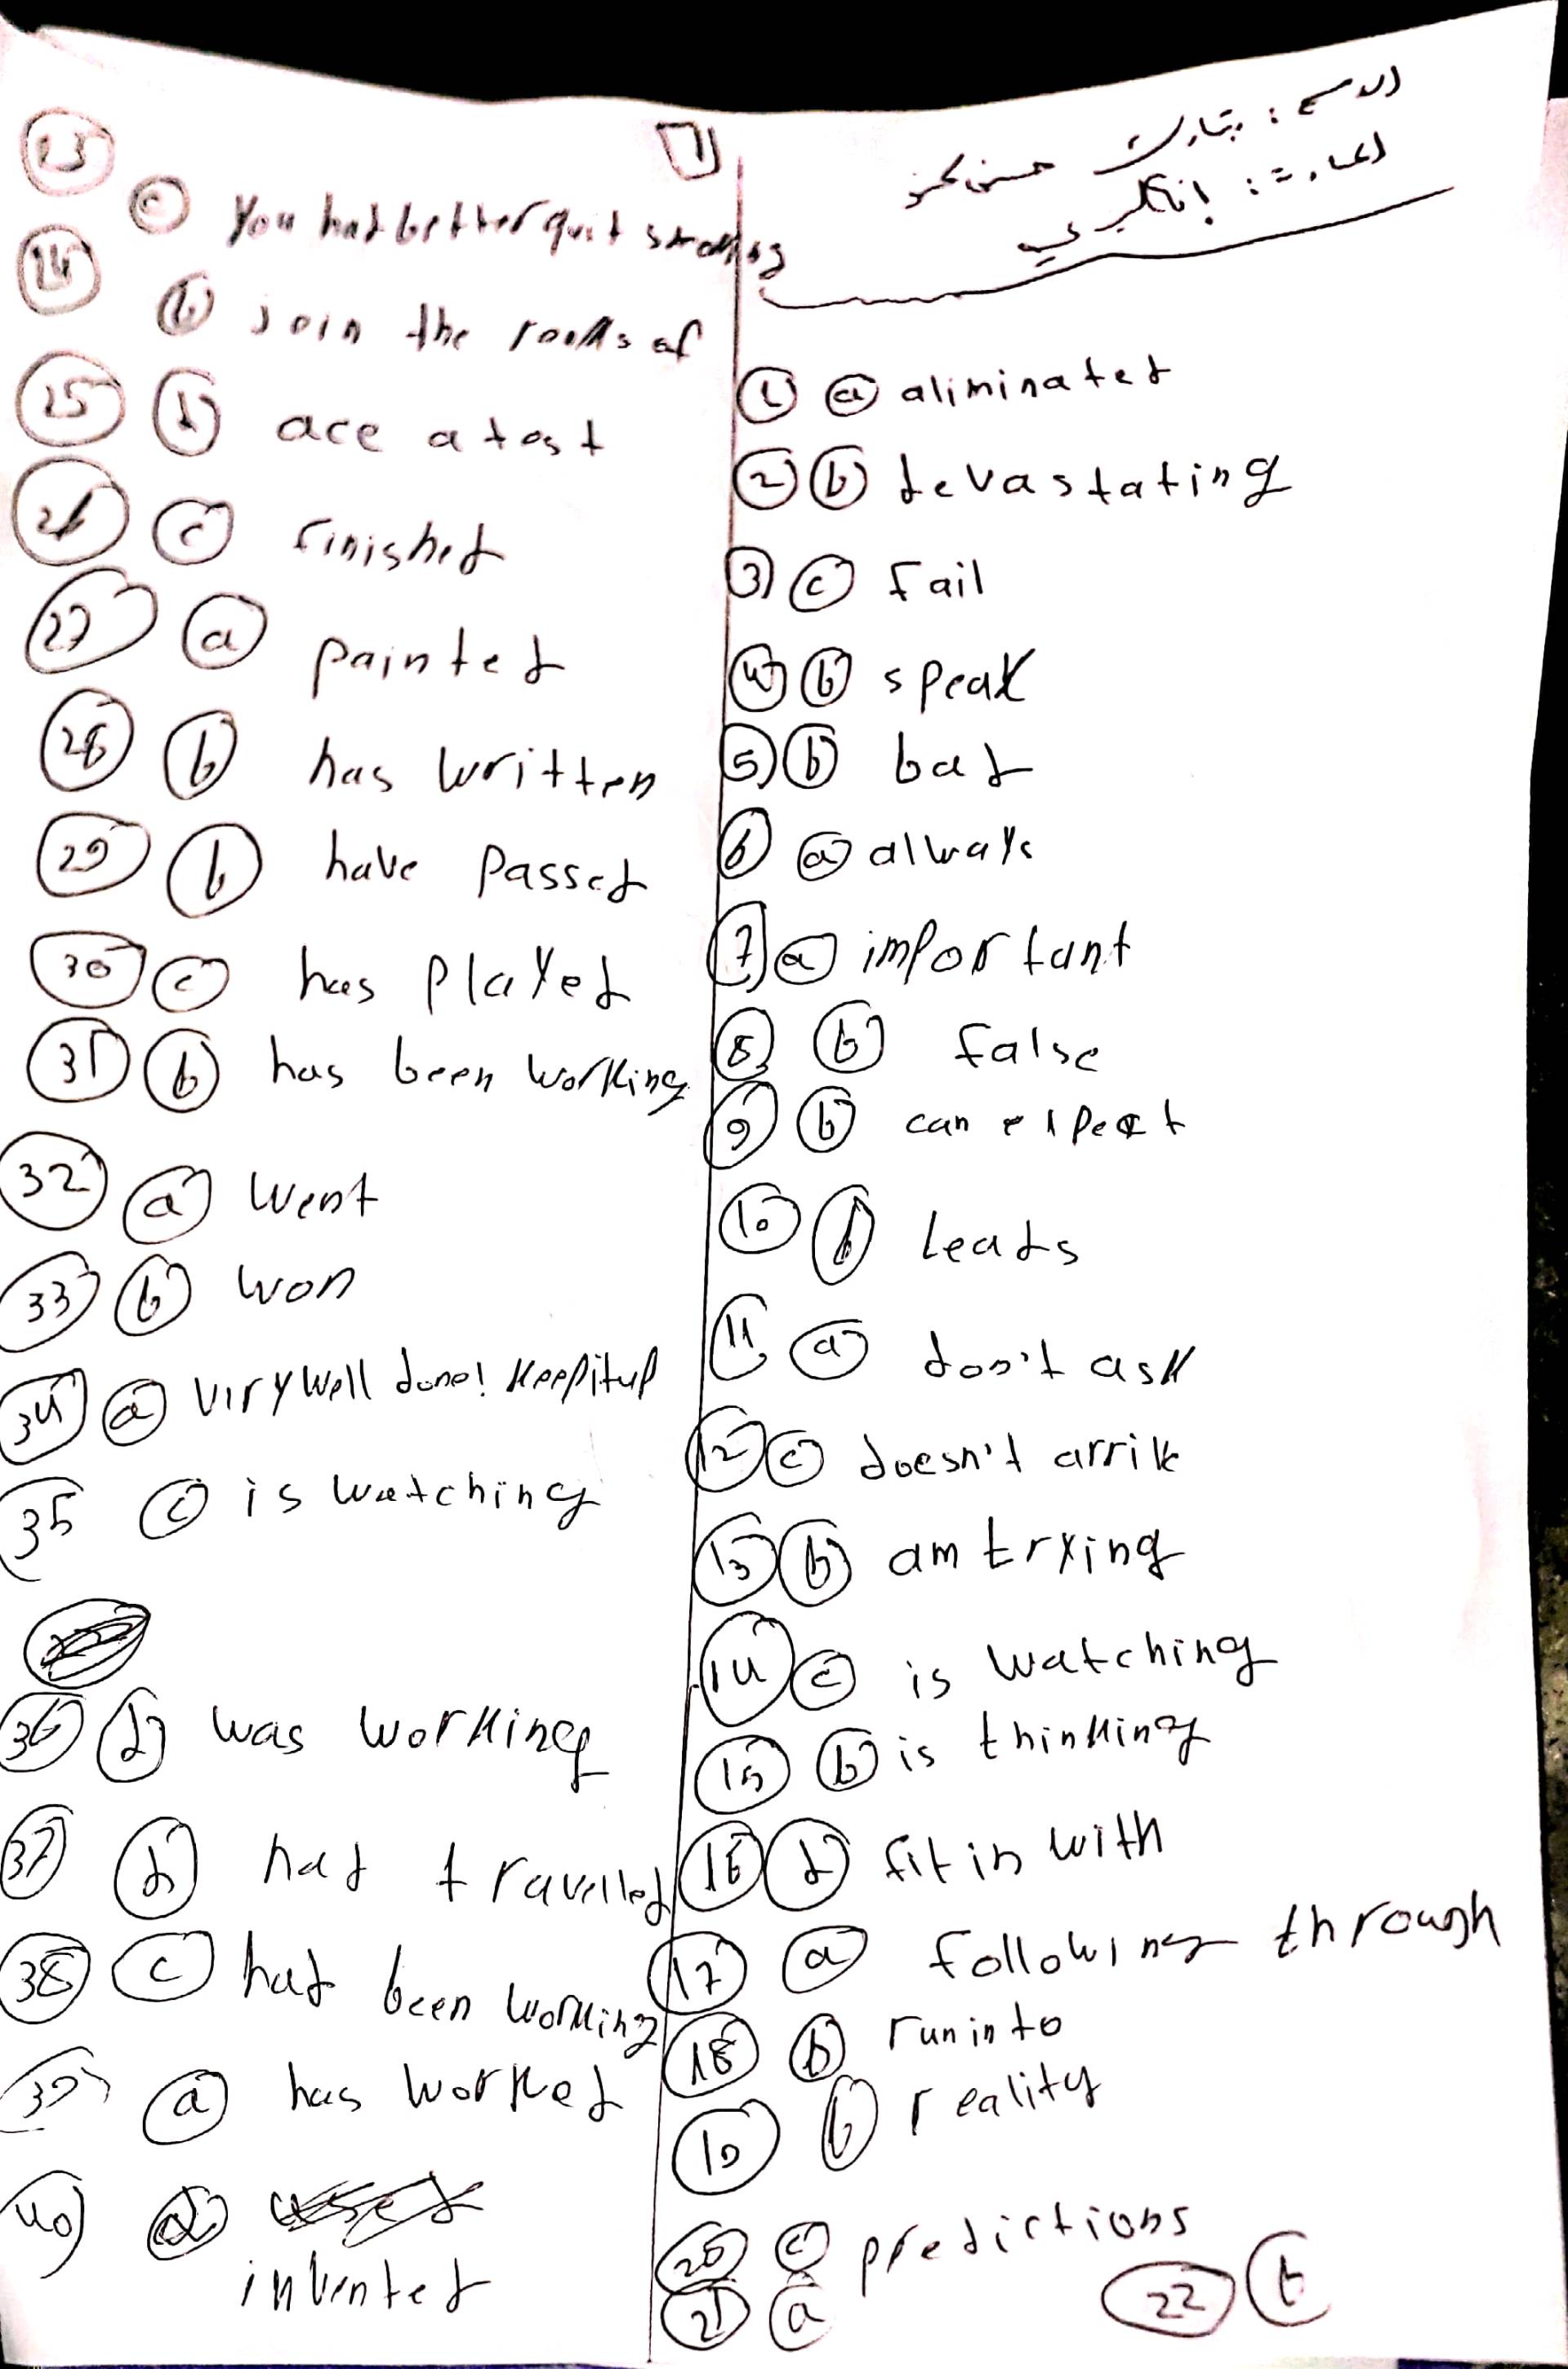 1
الاسم : بشارت حسن
المادة : إنكليزي
1 a aliminated
2 b devastating
3 c fail
4 b speak
5 b bad
6 a always
7 a important
8 b false
9 b can expect
10 b leads
11 a don't ask
12 c doesn't arrive
13 b am trying
14 c is watching
15 b is thinking
16 d fit in with
17 a following through
18 b run into
19 b reality
20 c predictions
21 a
22 b
23
c You had better quit smoking
24
b join the ranks of
25 b ace a test
26 c finished
27 a painted
28 b has written
29 b have passed
30 c has played
31 b has been working
32 a went
33 b won
34 a viry well done! keep it up
35 c is watching
36 d was working
37 d had travelled
38 c had been working
39 a has worked
40 d
invented